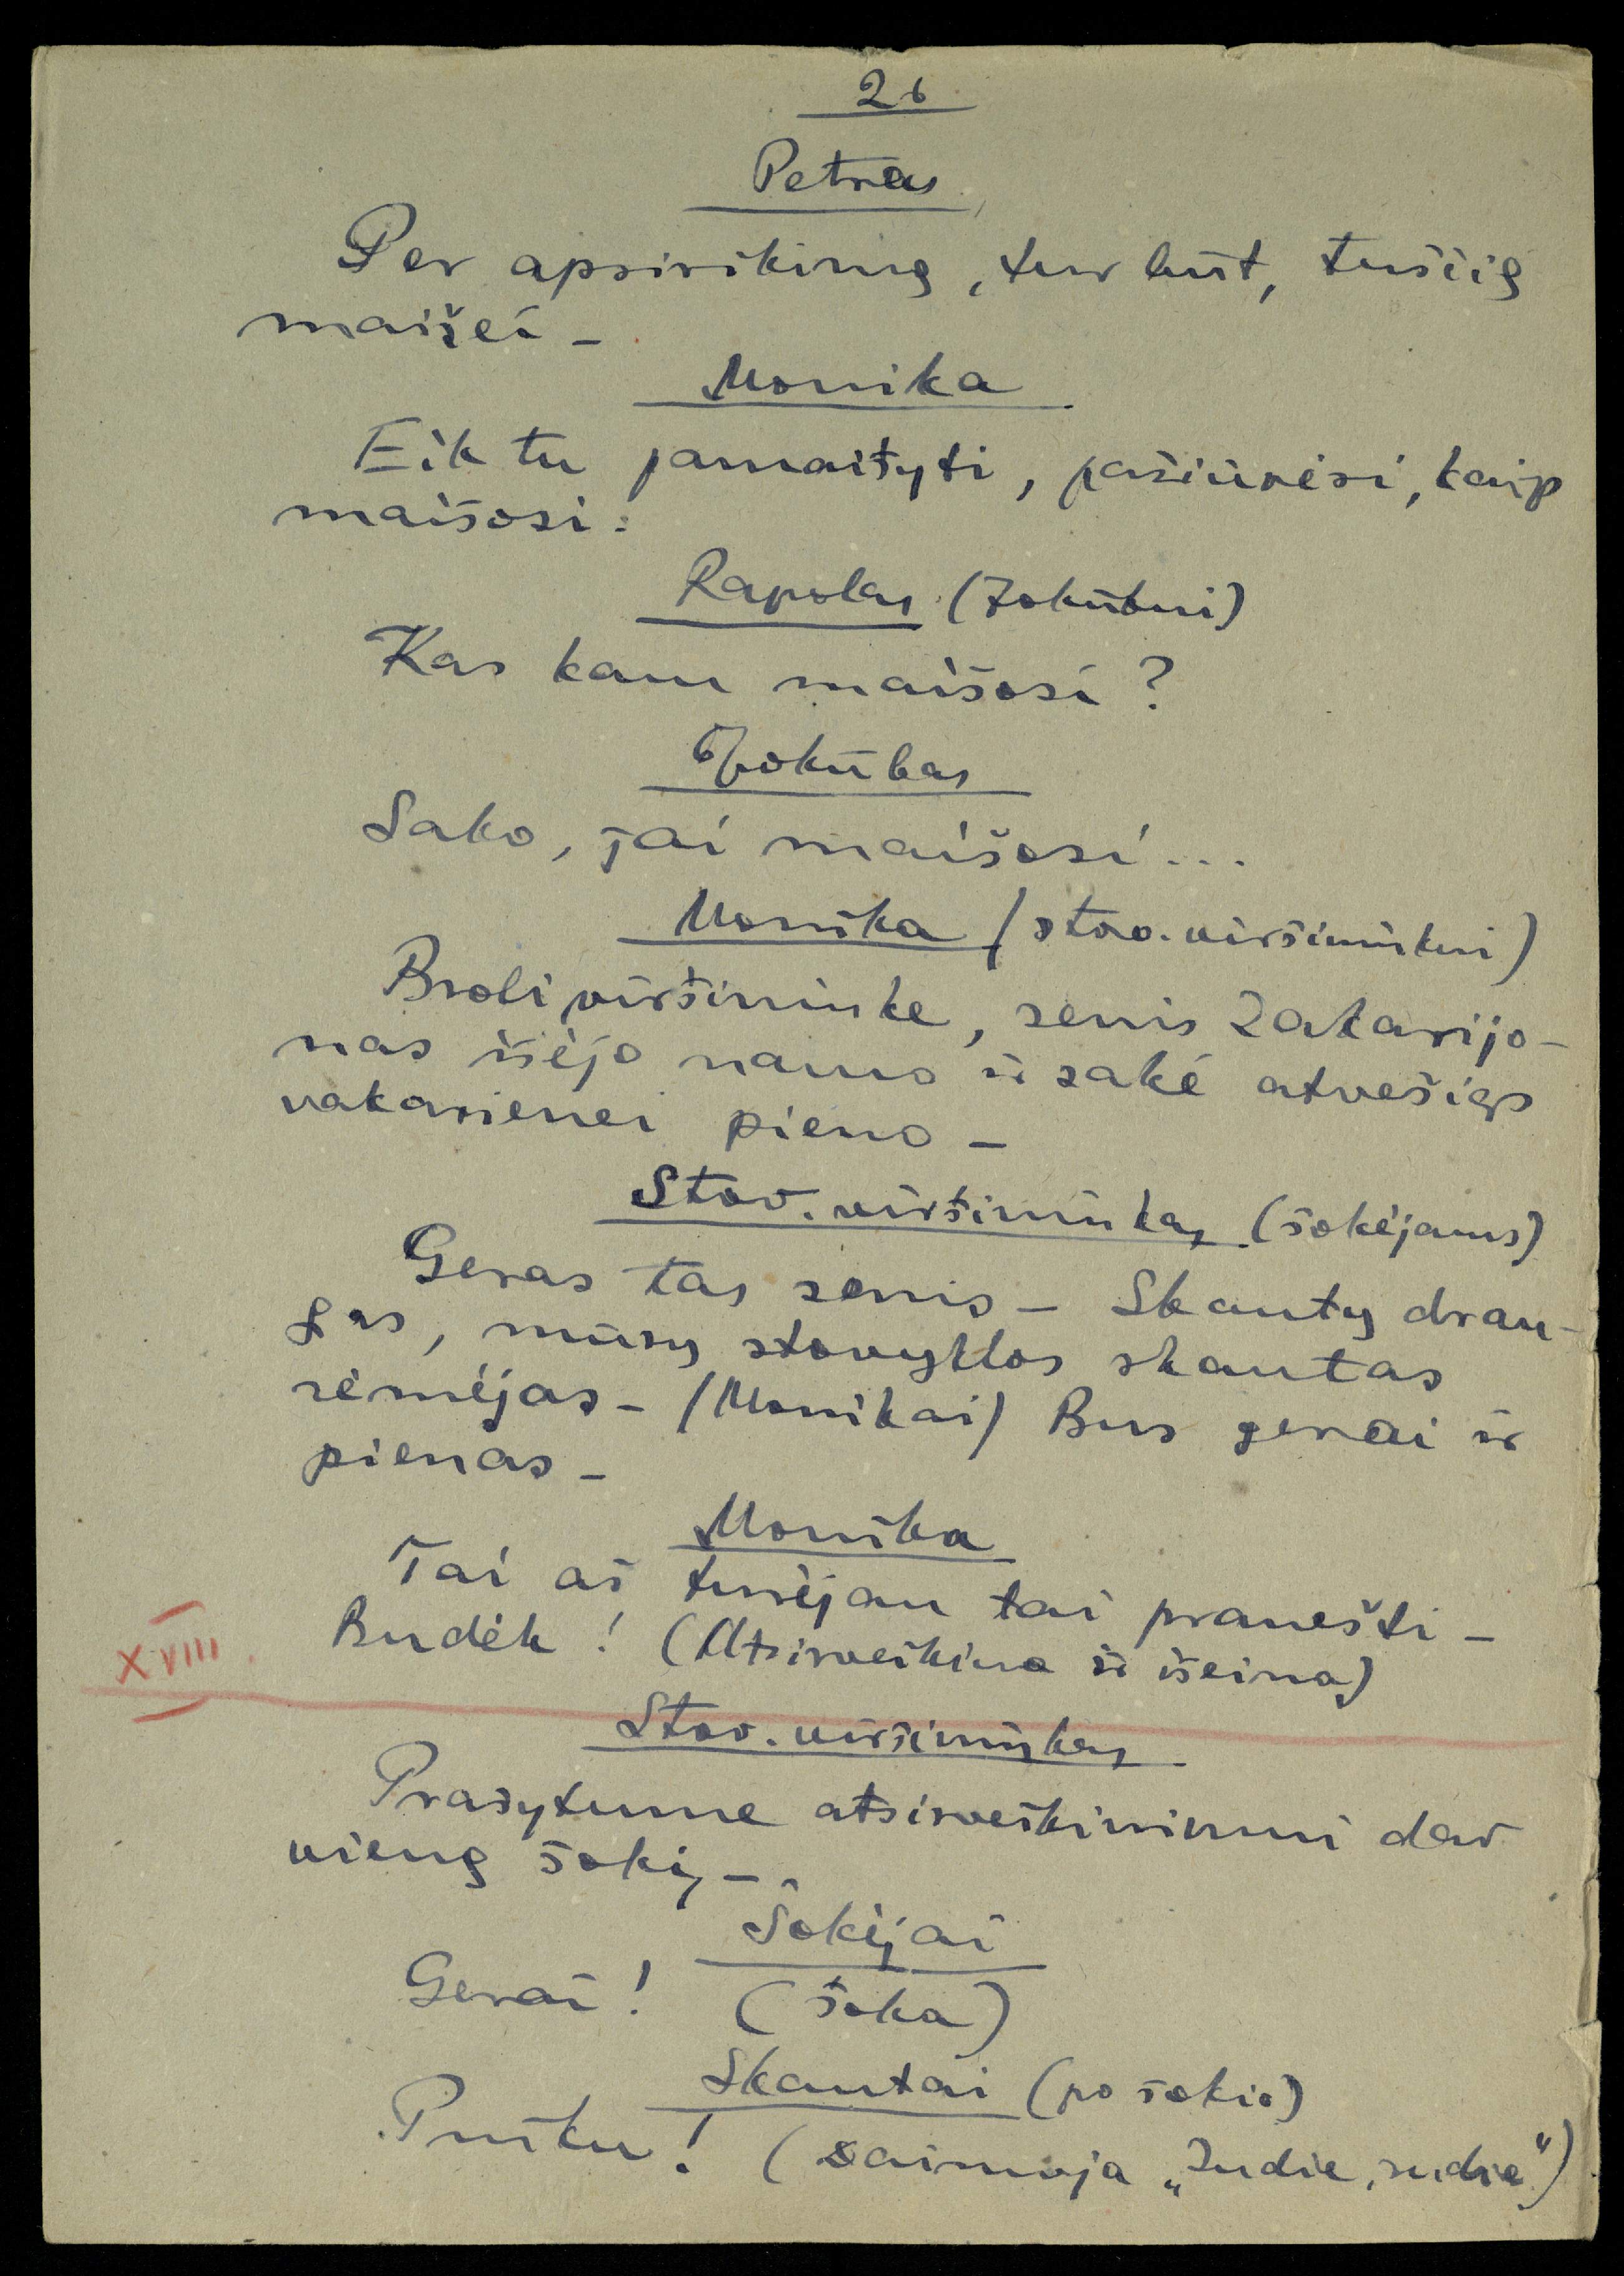 26
Petras
Per apsirikimą, tur būt, tuščią
maišei –
Monika
Eik tu pamaišyti, pažiūrėsi, kaip
maišosi.
Rapolas (Jokūbui)
Kas kam maišosi?
Jokūbas
Sako, jai maišosi...
Monika (stov. viršininkui)
Broli viršininke, senis Zakarijo-
nas išėjo namo ir sakė atvešiąs
vakarienei pieno –
Stov. viršininkas (šokėjams)
Geras tas senis – Skautų drau-
gas, mūsų stovyklos skautas
rėmėjas – (Monikai) Bus gerai ir
pienas –
Monika
Tai aš turėjau tai pranešti –
Budėk! (Atsisveikina ir išeina)
XVIII.
Stov. viršininkas
Prašytume atsisveikinimui dar
vieną šokį –
Šokėjai
Gerai! (šoka)
Skautai (po šokio)
Puiku! (dainuoja „Sudie, sudie“)